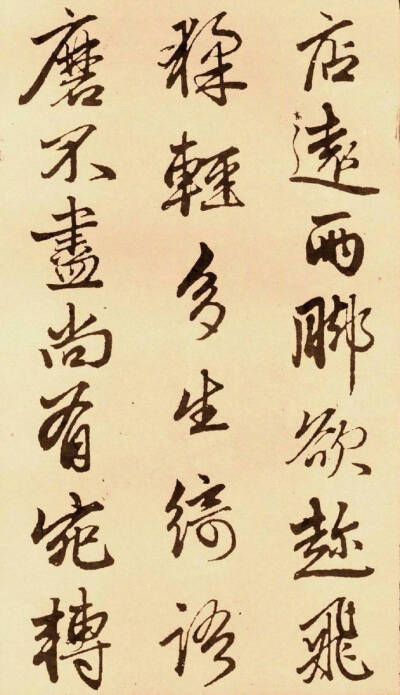 店遠兩腳欲趂飛
猱輕多生綺語
磨不盡尚有宛轉